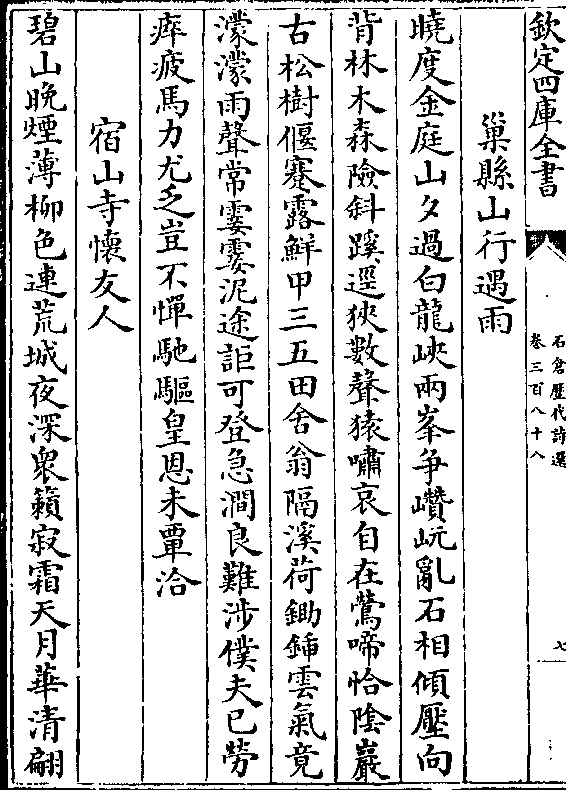 欽定四庫全書
石倉歷代詩選
卷三百八十八
七
巢縣山行遇雨
曉度金庭山夕過白龍峽兩峯爭巑岏亂石相傾壓向
背林木森險斜蹊逕狹數聲猿嘯哀自在鶯啼恰陰巖
古松樹偃蹇露鮮甲三五田舍翁隔溪荷鋤鍤雲氣竟
濛濛雨聲常霎霎泥途詎可登急澗良難涉僕夫已勞
瘁疲馬力尤乏豈不憚馳驅皇恩未覃洽
宿山寺懷友人
碧山晚煙薄柳色連荒城夜深衆籟寂霜天月華清翩